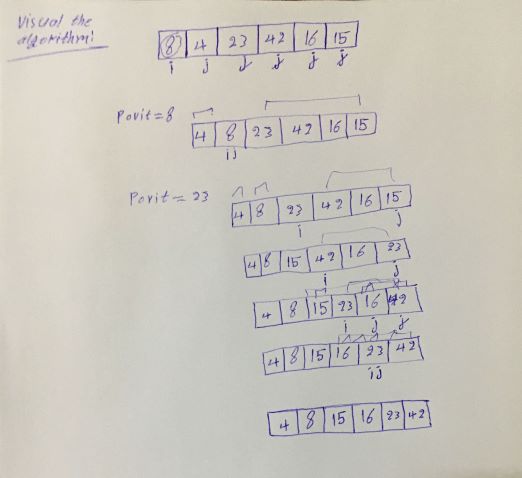 Visual the
algorithm:
8 4 23 42 16 15
i j j j j j
Povit = 8
4 8 23 42 16 15
i j
Povit = 23
4 8 23 42 16 15
i j
4 8 15 42 16 23
i j
4 8 15 23 16 42
i j j
4 8 15 16 23 42
i j
4 8 15 16 23 42